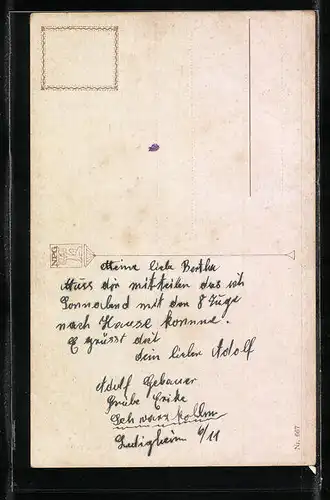 NPG
Meine liebe Bertha
Muss dir mitteilen das ich
Sonnabend mit den 8 Zuge
nach Hause komme.
Es grüsst dich
dein lieber Adolf
Adolf Gebauer
Grube Erika
Schwarzkollm
6/11
Nr. 667